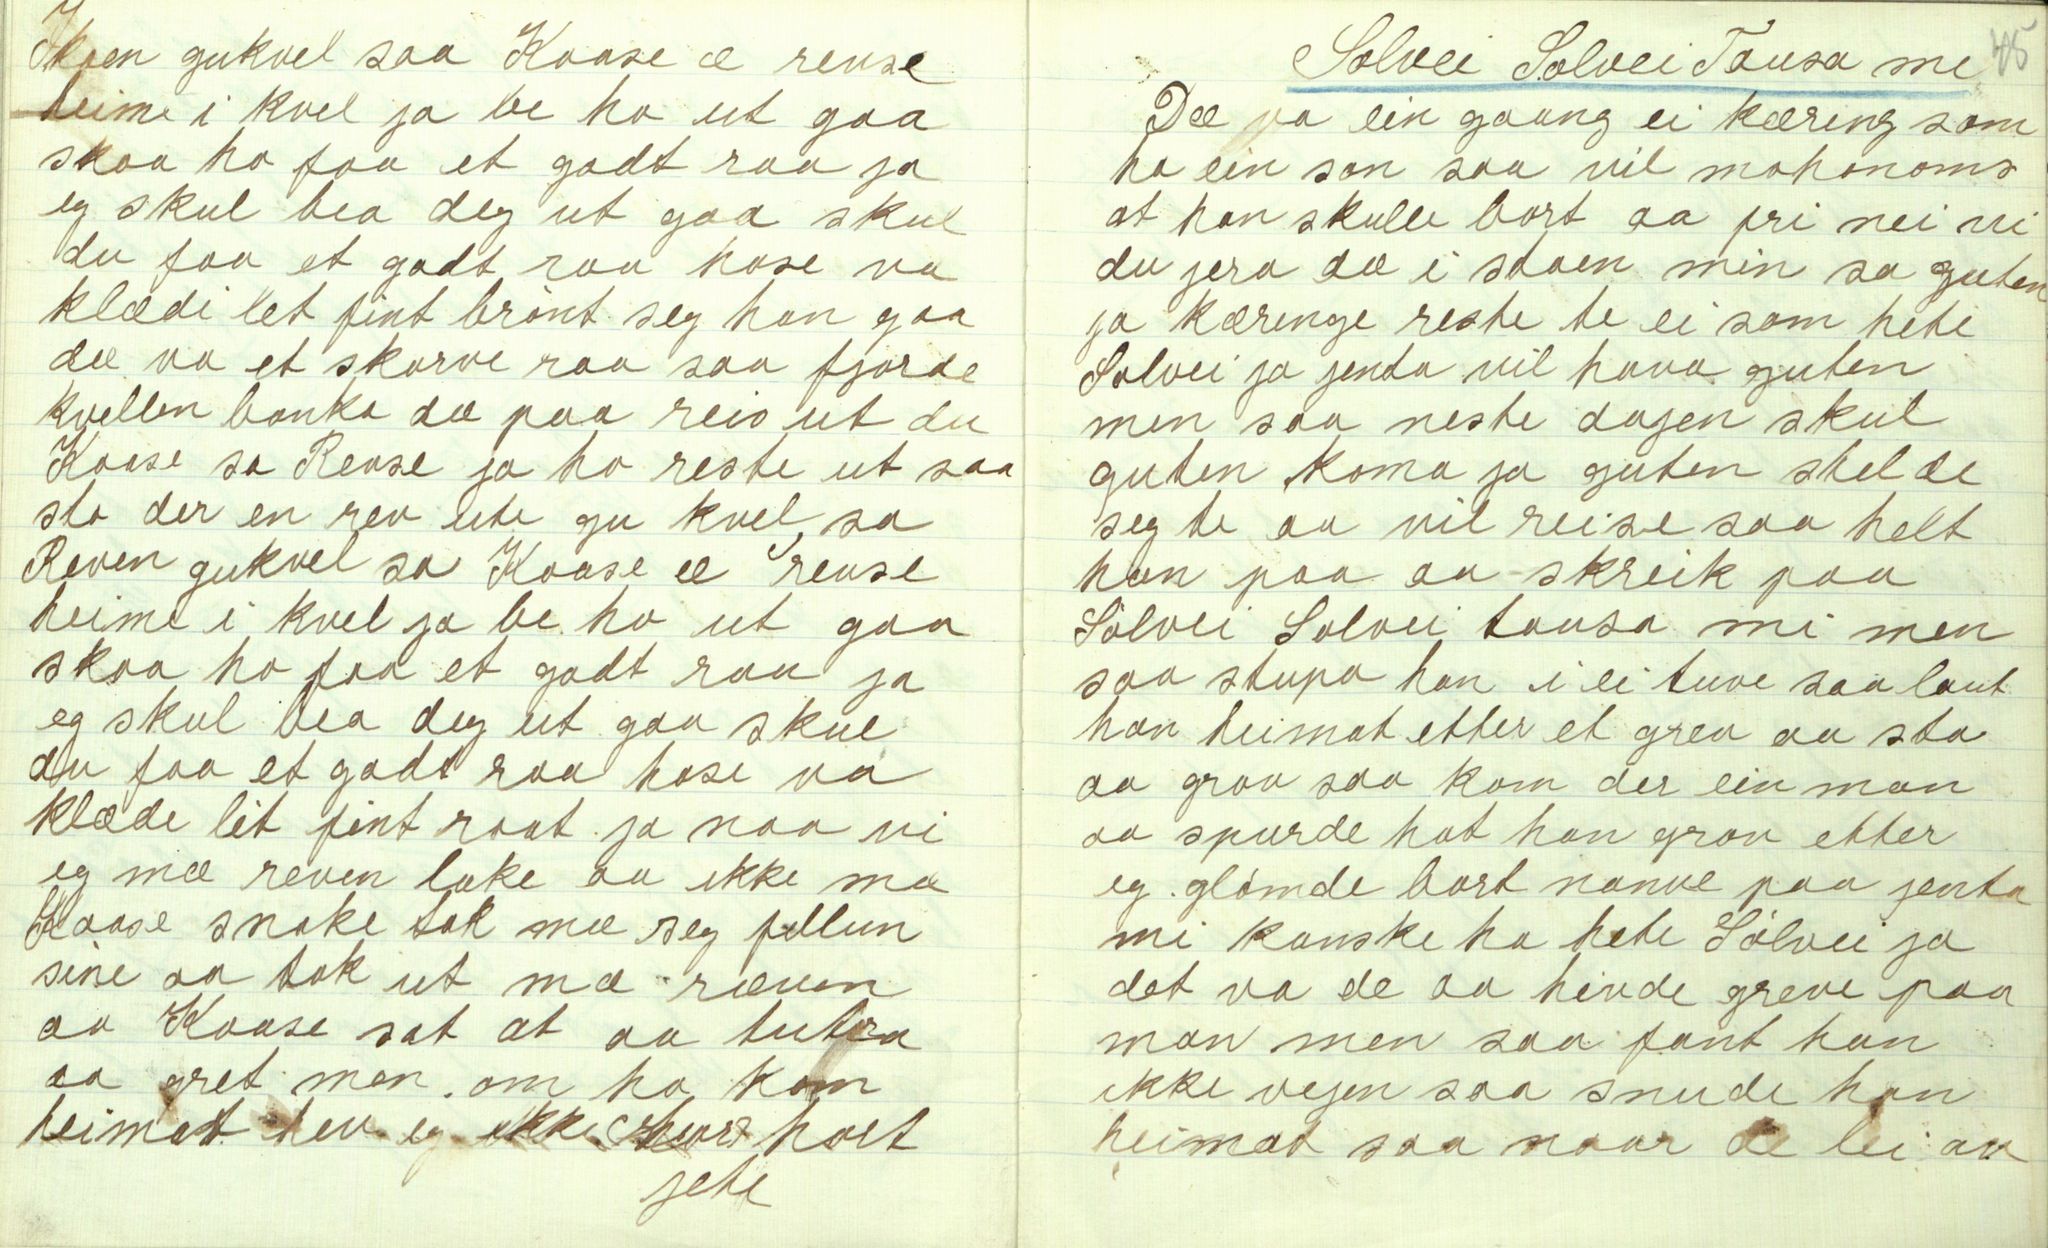 gukvel saa Kaase æ reuse
heime i kvel ja be ho ut gaa
skaa ho faa et godt raa ja
eg skul bea deg ut gaa skul
du faa et godt raa hase va
klædi let fint brønt seg han gaa
dæ va et skarve raa saa fjorde
kvellen banka dæ paa reis ut du
Kaase sa Reuse ja ho reste ut saa
sto der en rev ute gu kvel sa
Reven gukvel sa Kaase æ reuse
heime i kvel ja be ho ut gaa
skaa ho faa et godt raa ja
eg skul bea deg ut gaa skul
du faa et godt raa hase va
klæde lit fint raat ja naa vi
eg mæ reven lake aa ikke mæ
Kaase snake tok mæ seg fillun
sine aa tok ut mæ ræven
aa Kaase sat at aa tutra
aa gret men om ho kom
heimat hev eg ikke hørt
jete
45
Solvei Solvei Tausa mi
Dæ va ein gaang ei kæring som
ha ein son saa vil mo honoms
at han skulle bort aa fri nei vi
du jera dæ i staen min sa guten
ja kæringe reste te ei som hete
Solvei ja jenta vil hava guten
men saa neste dagen skul
guten koma ja guten stelde
seg te aa vil reise saa helt
han paa aa skreik paa
Sölvei Solvei tausa mi men
saa stupa han i ei tuve saa laut
han heimat etter et grev aa sto
aa grov saa kom der ein man
aa spurde hat han grov etter
eg glömde bort nanve paa jenta
mi kanske ho hete Sölvei ja
det va de aa hivde greve paa
man men saa fant han
ikke vejen saa snude han
heimat saa naar de lei av